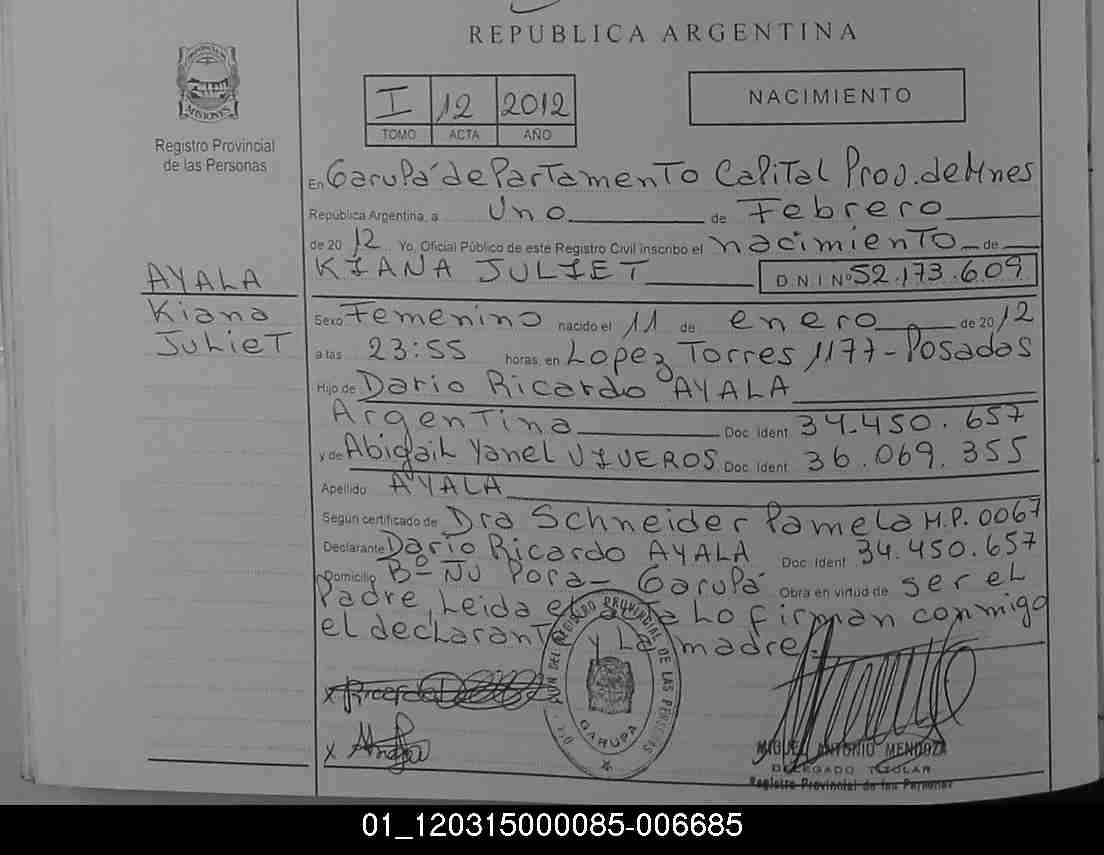 REPUBLICA ARGENTINA
PROVINCIA DE
MISIONES
Registro Provincial
de las Personas
I 12 2012
TOMO ACTA AÑO
NACIMIENTO
En Garupá departamento Capital Prov. de Mnes
República Argentina, a Uno de Febrero
de 2012 Yo, Oficial Público de este Registro Civil inscribo el nacimiento de
KIANA JULIET D N I Nº 52.173.609
AYALA
Kiana
Juliet
Sexo Femenino nacido el 11 de enero de 2012
a las 23:55 horas, en Lopez Torres 1177 - Posadas
Hijo de Dario Ricardo AYALA
Argentina Doc. Ident 34.450.657
y de Abigail Yanel VIVEROS Doc. Ident 36.069.355
Apellido AYALA
Según certificado de Dra Schneider Pamela M.P. 0067
Declarante Dario Ricardo AYALA Doc. Ident 34.450.657
Domicilio Bº Ñu Pora - Garupá Obra en virtud de ser el
Padre, Leida el acta Lo firman conmigo
el declarante y La madre.
DEL REGISTRO PROVINCIAL DE LAS PERSONAS
GARUPA
x Ricardo
x
MIGUEL ANTONIO MENDOZA
DELEGADO TITULAR
Registro Provincial de las Personas
01_120315000085-006685